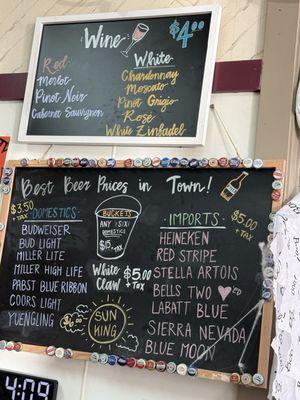 Wine
$4.00
Red
Merlot
Pinot Noir
Cabernet Sauvignon
White
Chardonnay
Moscato
Pinot Grigio
Rosé
White Zinfadel
Best Beer Prices in Town!
$3.50
+ TAX
DOMESTICS
BUDWEISER
BUD LIGHT
MILLER LITE
MILLER HIGH LIFE
PABST BLUE RIBBON
COORS LIGHT
YUENGLING
BUCKETS
ANY SIX
DOMESTICS
$15.00
White Claw
$5.00
+ TAX
$6.00
SUN KING
IMPORTS
$5.00
+ TAX
HEINEKEN
RED STRIPE
STELLA ARTOIS
BELLS TWO ♥
LABATT BLUE
SIERRA NEVADA
BLUE MOON
4:09